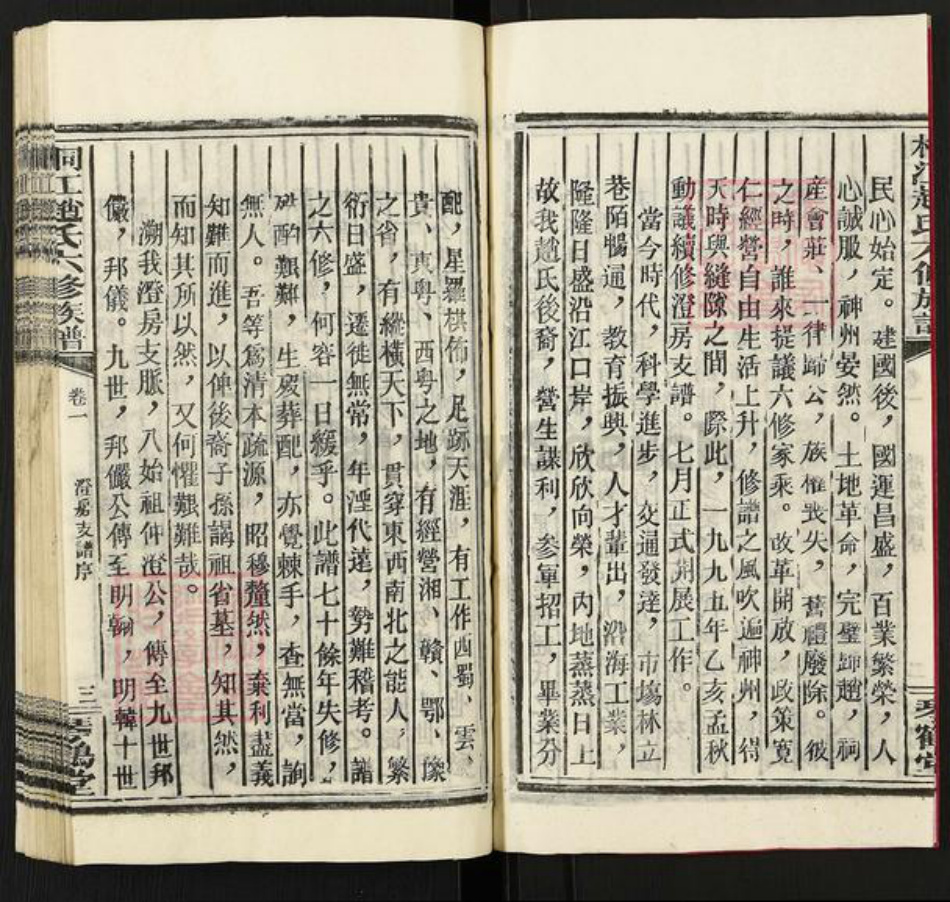 民心始定。建國後，國運昌盛，百業繁榮，人
心誠服，神州晏然。土地革命，完璧歸趙，祠
產會莊、一律歸公，族權喪失，舊禮廢除。彼
之時，誰來提議六修家乘。改革開放，政策寬
仁經營自由生活上升，修譜之風吹遍神州，得
天時與縫隙之間，際此，一九九五年乙亥孟秋
動議續修澄房支譜。七月正式開展工作。
當今時代，科學進步，交通發達，市場林立
巷陌暢通，教育振興，人才輩出，沿海工業，
隆隆日盛沿江口岸，欣欣向榮，內地蒸蒸日上
故我趙氏後裔，營生謀利，參軍招工，畢業分
配，星羅棋佈，足跡天涯，有工作西蜀、雲、
貴、東粵、西粵之地，有經營湘、贛、鄂、豫
之省，有縱橫天下，貫穿東西南北之能人，繁
衍日盛，遷徙無常，年湮代遠，勢難稽考。譜
之六修，何容一日緩乎。此譜七十餘年失修，
酌艱難，生歿葬配，亦覺棘手，查無當，詢
無人。吾等為清本疏源，昭穆釐然，棄利盡義
知難而進，以俾後裔子孫謁祖省墓，知其然，
而知其所以然，又何懼艱難哉。
溯我澄房支脈，八始祖仲澄公，傳至九世邦
儼，邦儀。九世，邦儼公傳至明翰，明韓十世
趙氏六修族譜
卷一
澄房支譜序
三
琴鶴堂